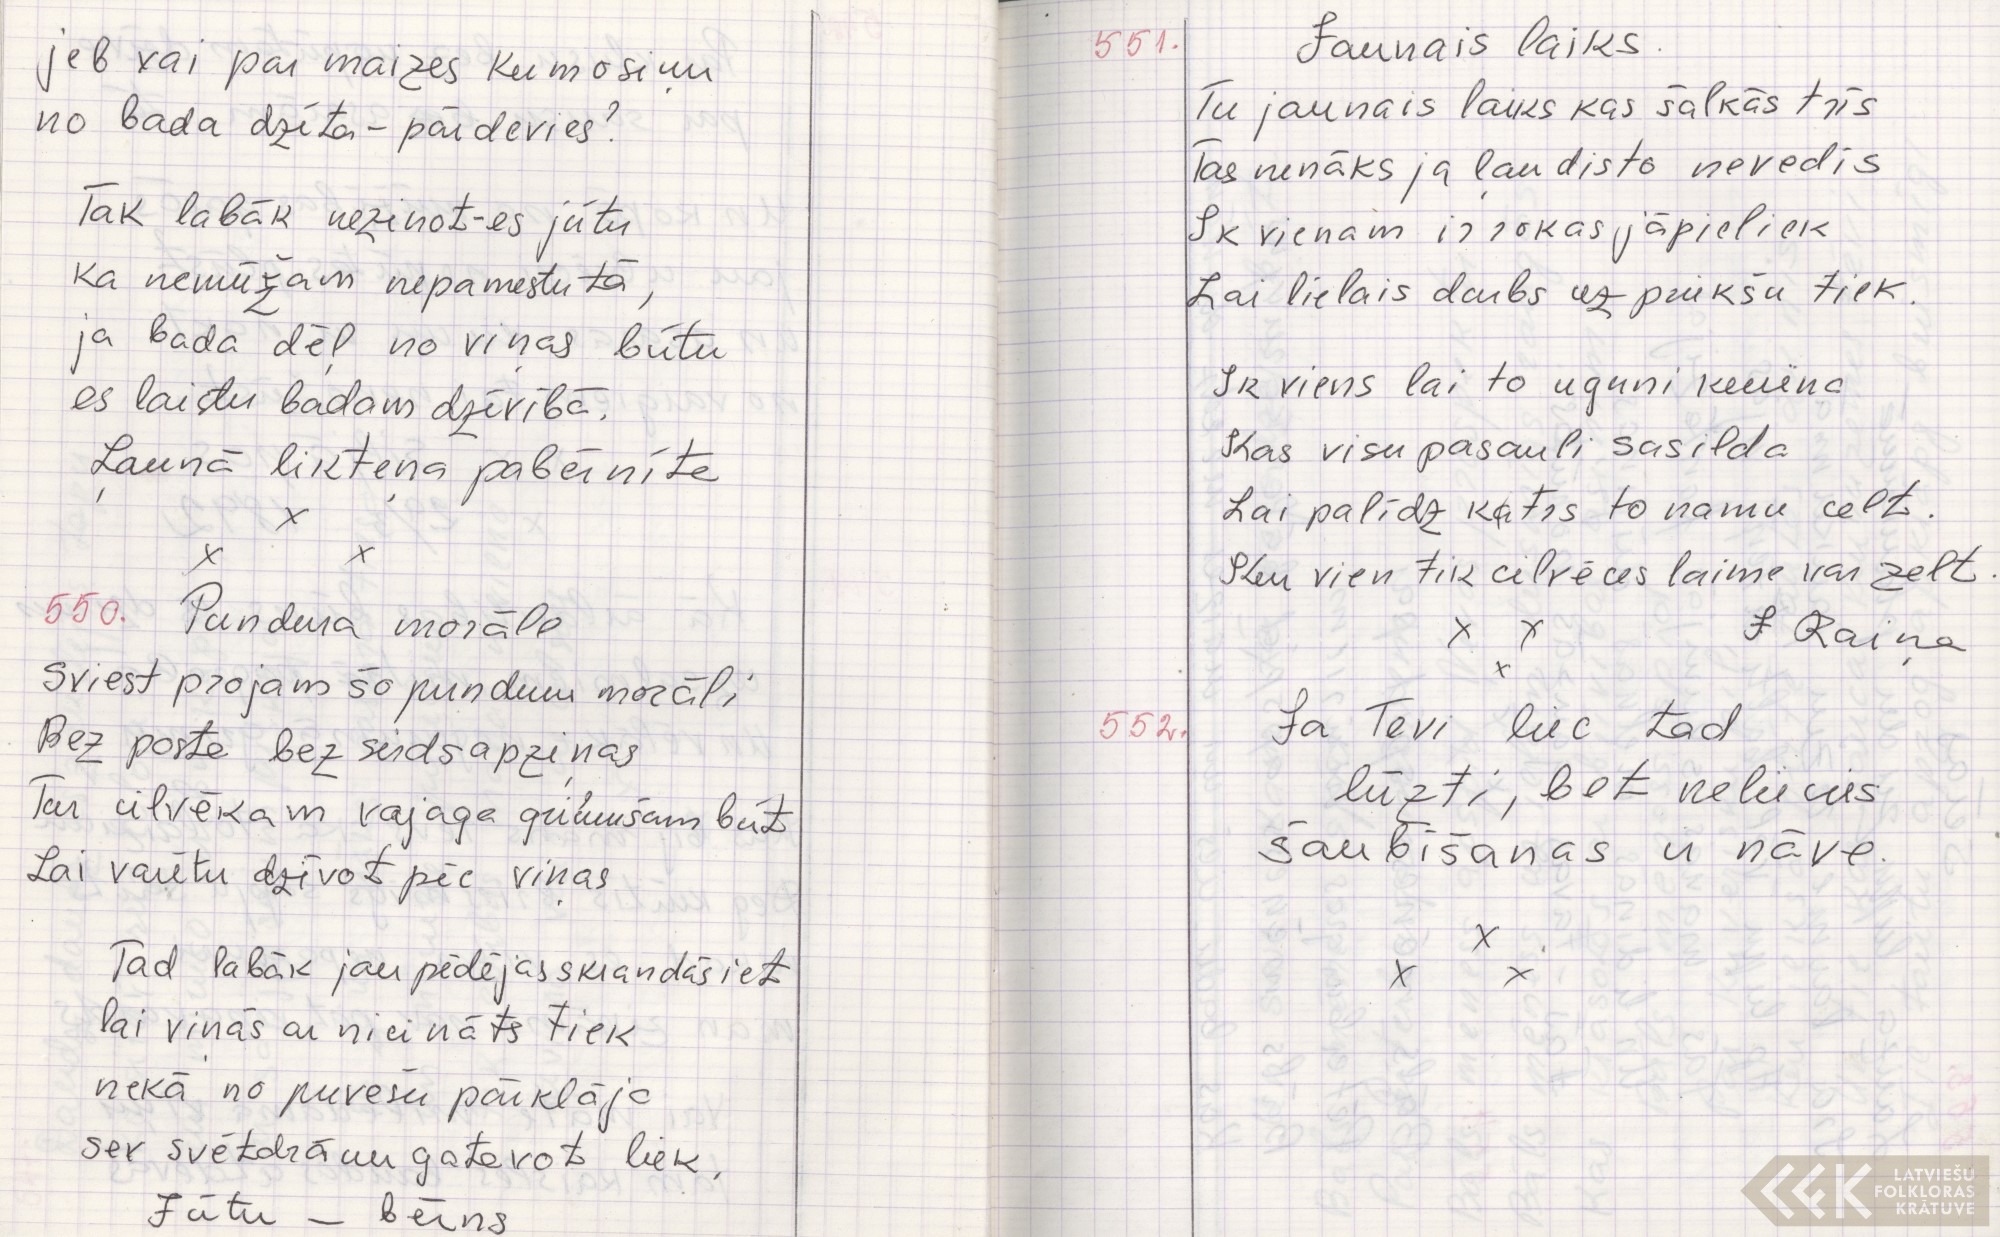 jeb vai par maizes kumosiņu
no bada dzīta - pārdevies?
Tak labāk nezinot - es jūtu
ka nemūžam nepamestu tā,
ja bada dēļ no viņas būtu
es laistu badam dzīvībā.
Ļaunā likteņa pabērnīte
x
x x
550. Pundura morāle
Sviest projam šo punduru morāli
Bez posta bez sirdsapziņas
Tur cilvēkam vajaga būt
Lai varētu dzīvot pēc viņas
Tad labāk jau pēdējās skrandās iet
lai viņās ar nicināts tiek
nekā no puvešu pārklāja
sev svētdrānu gatavot liek,
Jūtu - bērns
551. Jaunais laiks.
Tu jaunais laiks kas šalkās trīs
Tas nenāks ja ļaudis to nevedīs
Ik vienam ir rokas jāpieliek
Lai lielais darbs uz priekšu tiek.
Ik viens lai to uguni kurina
Kas visu pasauli sasilda
Lai palīdz katrs to namu celt.
Kur vien tik cilvēces laime var zelt.
x x J Raiņa
x
552. Ja Tevi liec tad
lūzti, bet neliecies
šaubīšanas ir nāve.
x
x x
LATVIEŠU
FOLKLORAS
KRĀTUVE